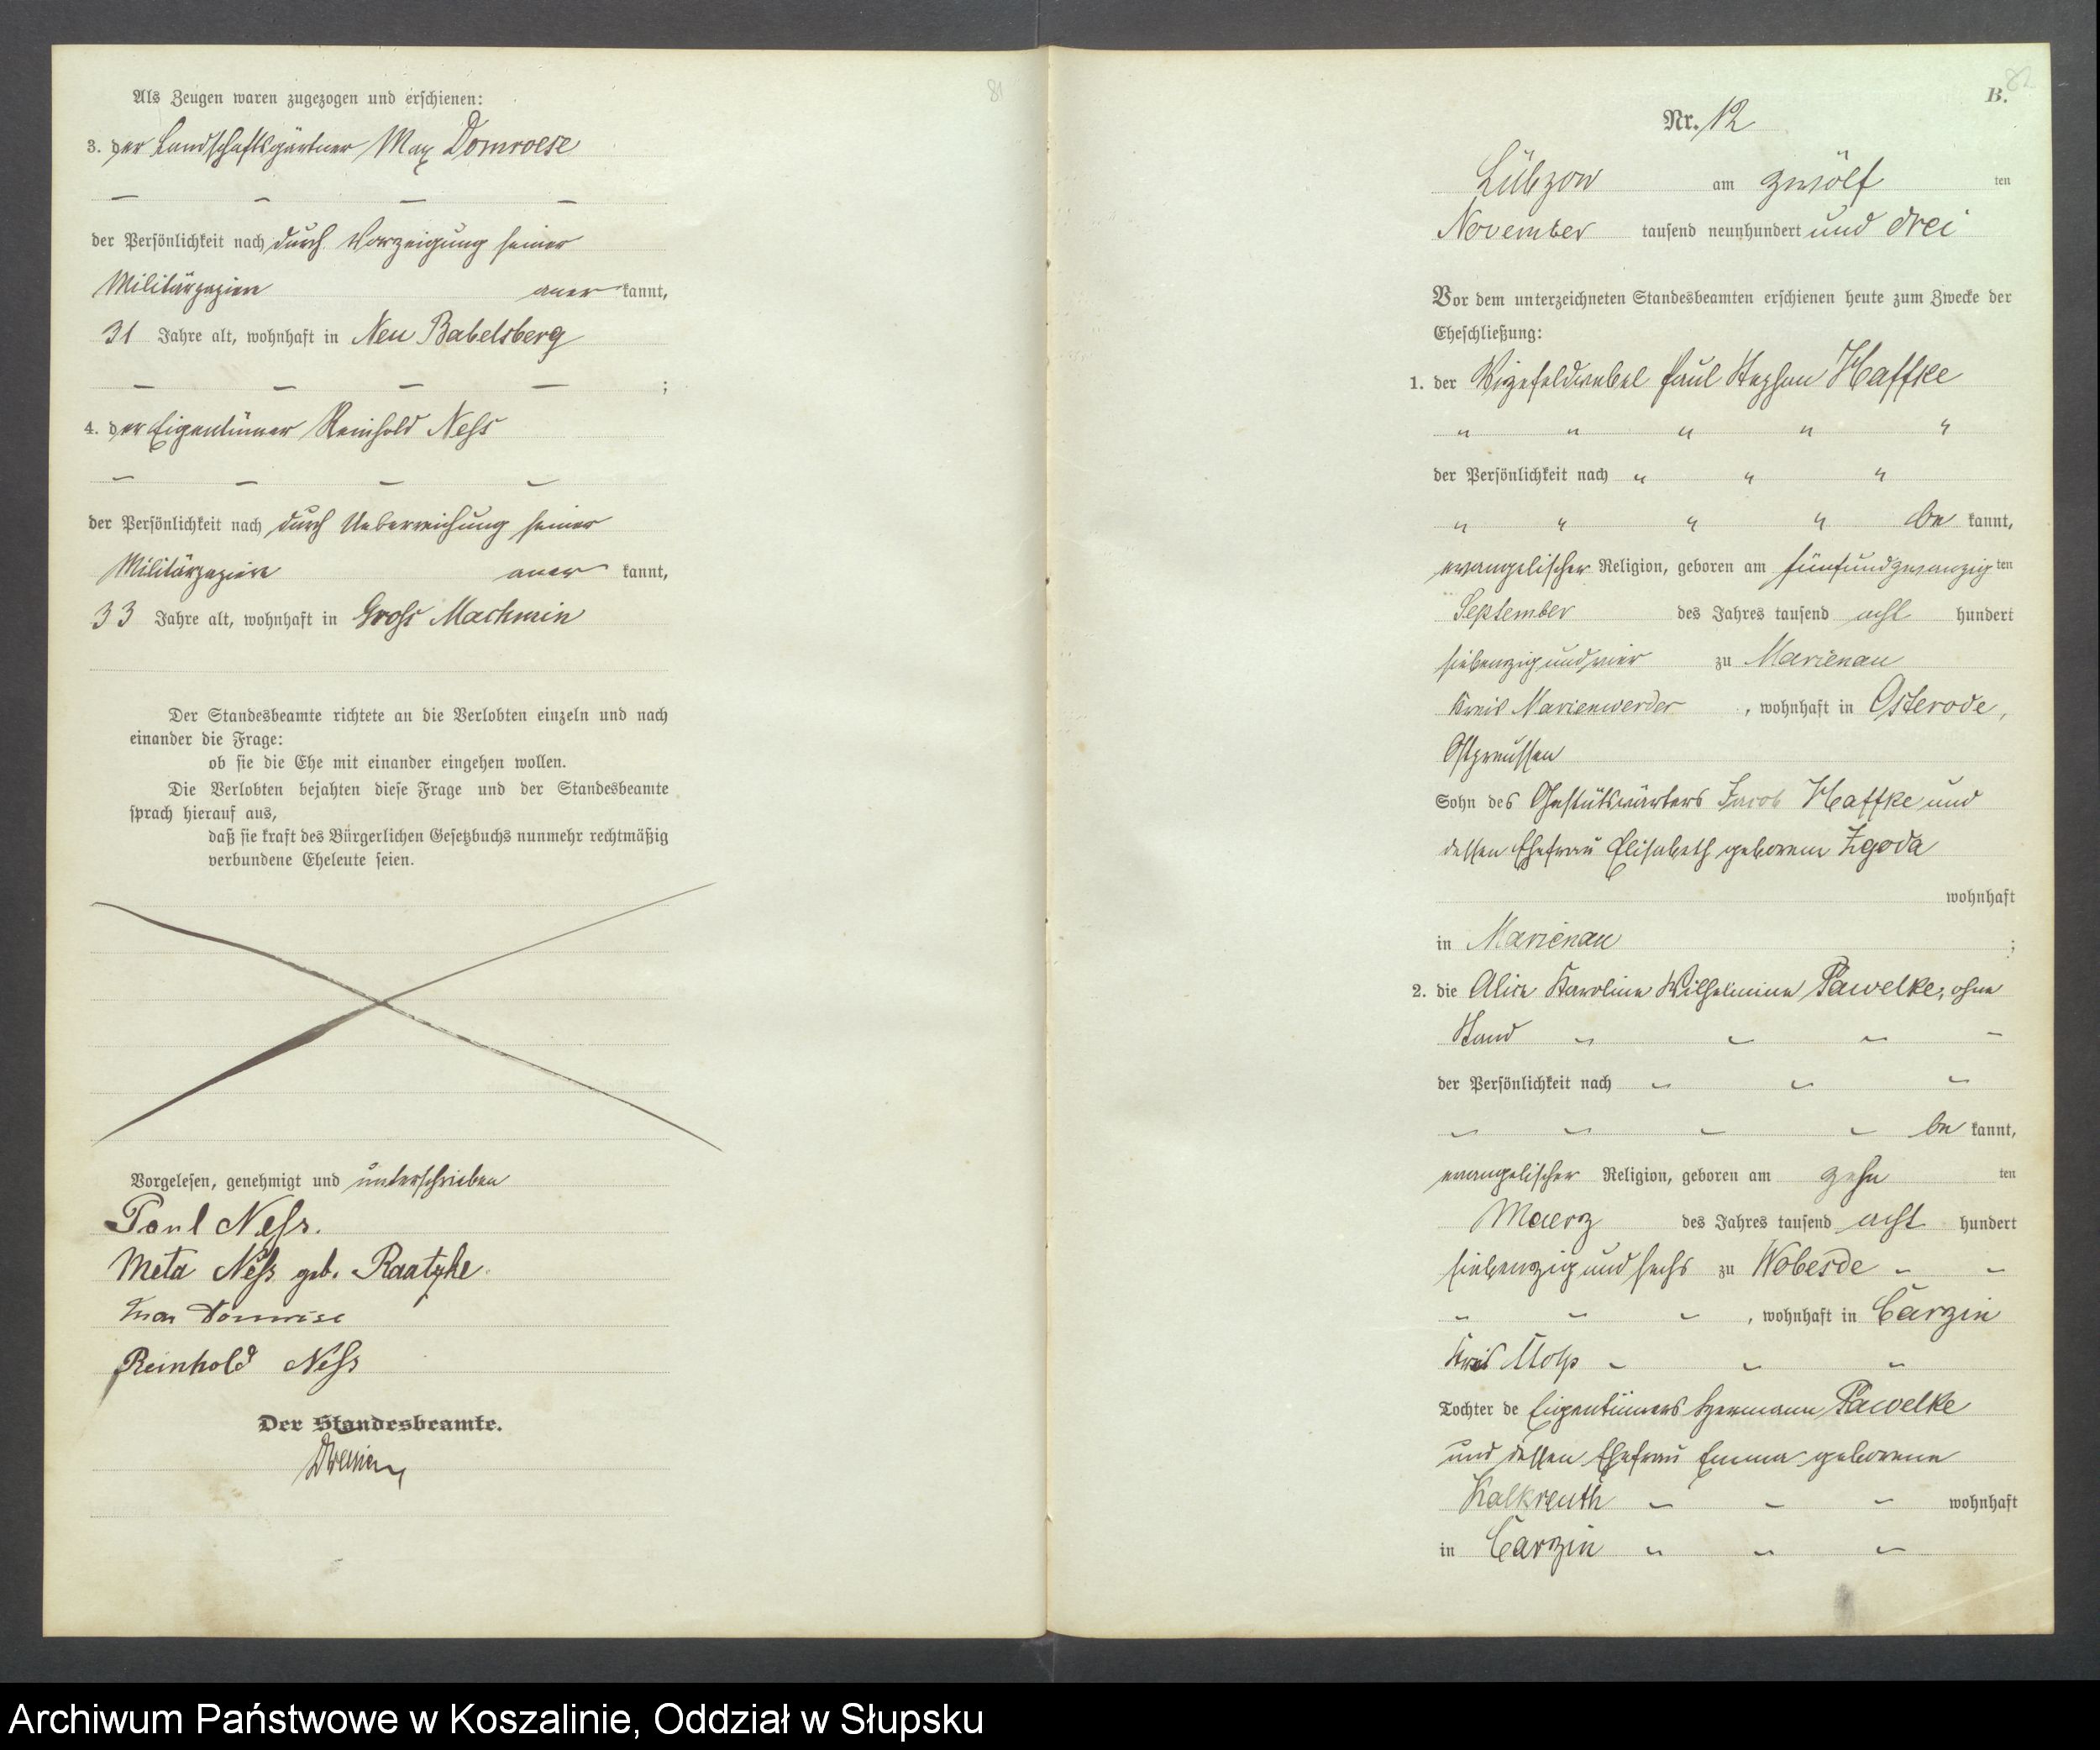 81
Als Zeugen waren zugezogen und erschienen:
3. der Landschaftsgärtner Max Domroese
der Persönlichkeit nach durch Vorzeigung seiner
Militärpapiere aner kannt,
31 Jahre alt, wohnhaft in Neu Babelsberg
;
4. der Eigentümer Reinhold Neß
der Persönlichkeit nach durch Ueberreichung seiner
Militärpapiere aner kannt,
33 Jahre alt, wohnhaft in Groß Machmin
Der Standesbeamte richtete an die Verlobten einzeln und nach
einander die Frage:
ob sie die Ehe mit einander eingehen wollen.
Die Verlobten bejahten diese Frage und der Standesbeamte
sprach hierauf aus,
daß sie kraft des Bürgerlichen Gesetzbuchs nunmehr rechtmäßig
verbundene Eheleute seien.
Vorgelesen, genehmigt und unterschrieben
Paul Neß.
Meta Neß geb. Raatzke.
Max Domröse
Reinhold Neß
Der Standesbeamte.
82
B.
Nr. 12
Lübzow am zwölf ten
November tausend neunhundert und drei
Vor dem unterzeichneten Standesbeamten erschienen heute zum Zwecke der
Eheschließung:
1. der Vizefeldwebel Paul Stephan Haffke
" " " " "
der Persönlichkeit nach " " "
" " " " be kannt,
evangelischer Religion, geboren am fünfundzwanzig ten
September des Jahres tausend acht hundert
siebenzig und vier zu Marienau
Kreis Marienwerder, wohnhaft in Osterode,
Ostpreussen
Sohn des Gestütswärters Jacob Haffke und
dessen Ehefrau Elisabeth geborene Zgoda
wohnhaft
in Marienau ;
2. die Alice Karoline Wilhelmine Pawelke, ohne
Stand " " " "
der Persönlichkeit nach " " "
" " " " be kannt,
evangelischer Religion, geboren am zehn ten
Maerz des Jahres tausend acht hundert
siebenzig und sechs zu Wobesde " "
" " " , wohnhaft in Carzin
Kreis Stolp " " "
Tochter de Eigentümers Hermann Pawelke
und dessen Ehefrau Emma geborene
Kalkreuth " " " wohnhaft
in Carzin " " "
Archiwum Państwowe w Koszalinie, Oddział w Słupsku